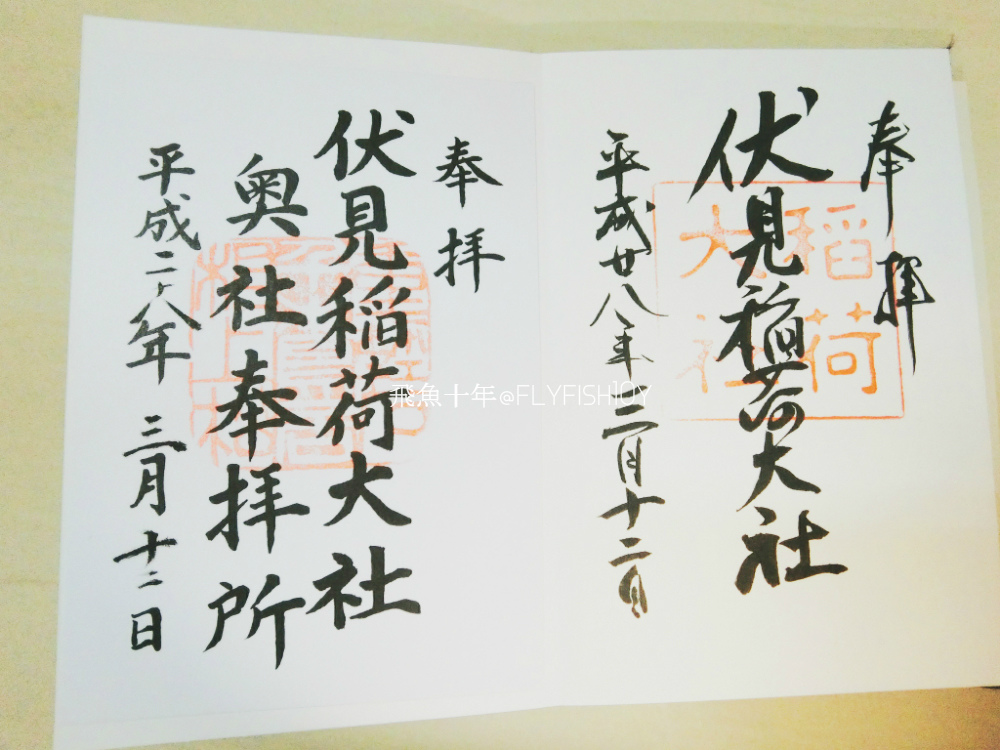 奉拝
伏見稲荷大社
稲荷
大社
平成廿八年三月十二日
奉拝
伏見稲荷大社
奥社奉拝所
平成二十八年三月十二日
飛魚十年@FLYFISH10Y